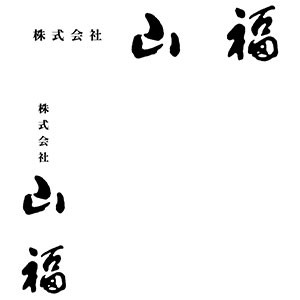 株式会社 山福
株式会社山福